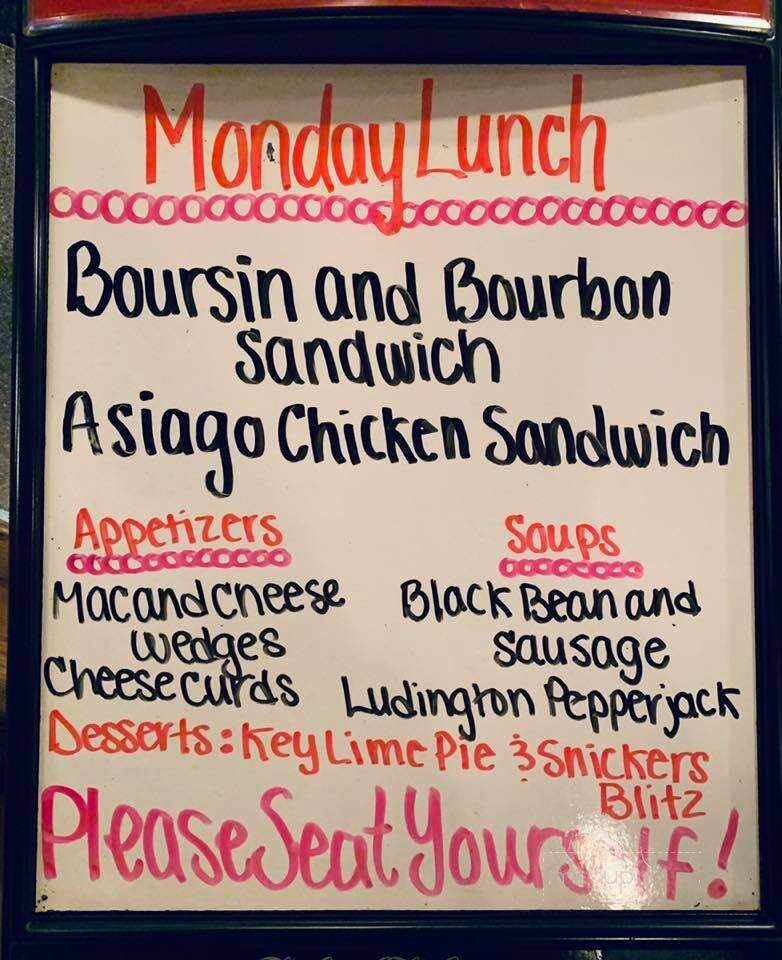 Monday Lunch
Boursin and Bourbon
Sandwich
Asiago Chicken Sandwich
Appetizers
Mac and Cheese
Wedges
Cheese curds
Soups
Black Bean and
Sausage
Ludington Pepperjack
Desserts: Key Lime Pie & Snickers
Blitz
Please Seat Yourself!